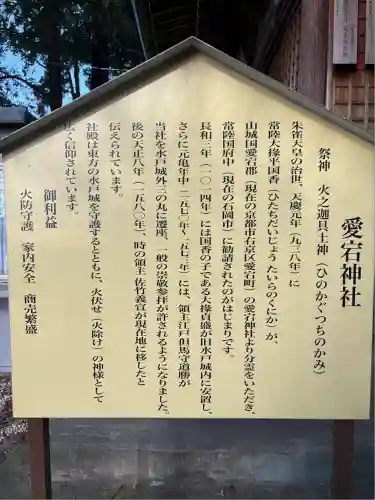 愛宕神社
祭神　火之迦具土神（ひのかぐつちのかみ）
朱雀天皇の治世、天慶元年（九三八年）に
常陸大掾平国香（ひたちだいじょう たいらのくにか）が、
山城国愛宕郡（現在の京都市右京区愛宕町）の愛宕神社より分霊をいただき、
常陸国府中（現在の石岡市）に勧請されたのがはじまりです。
長和三年（一〇一四年）には国香の子である大掾貞盛が旧水戸城内に安置し、
さらに元亀年中（一五七〇年～一五七三年）には、領主江戸但馬守道勝が
当社を水戸城外三の丸に遷座、一般の崇敬参拝が許されるようになりました。
後の天正八年（一五八〇年）、時の領主佐竹義宣が現在地に移したと
伝えられています。
社殿は東方の水戸城を守護するとともに、火伏せ（火除け）の神様として
広く信仰されています。
御利益
火防守護　家内安全　商売繁盛